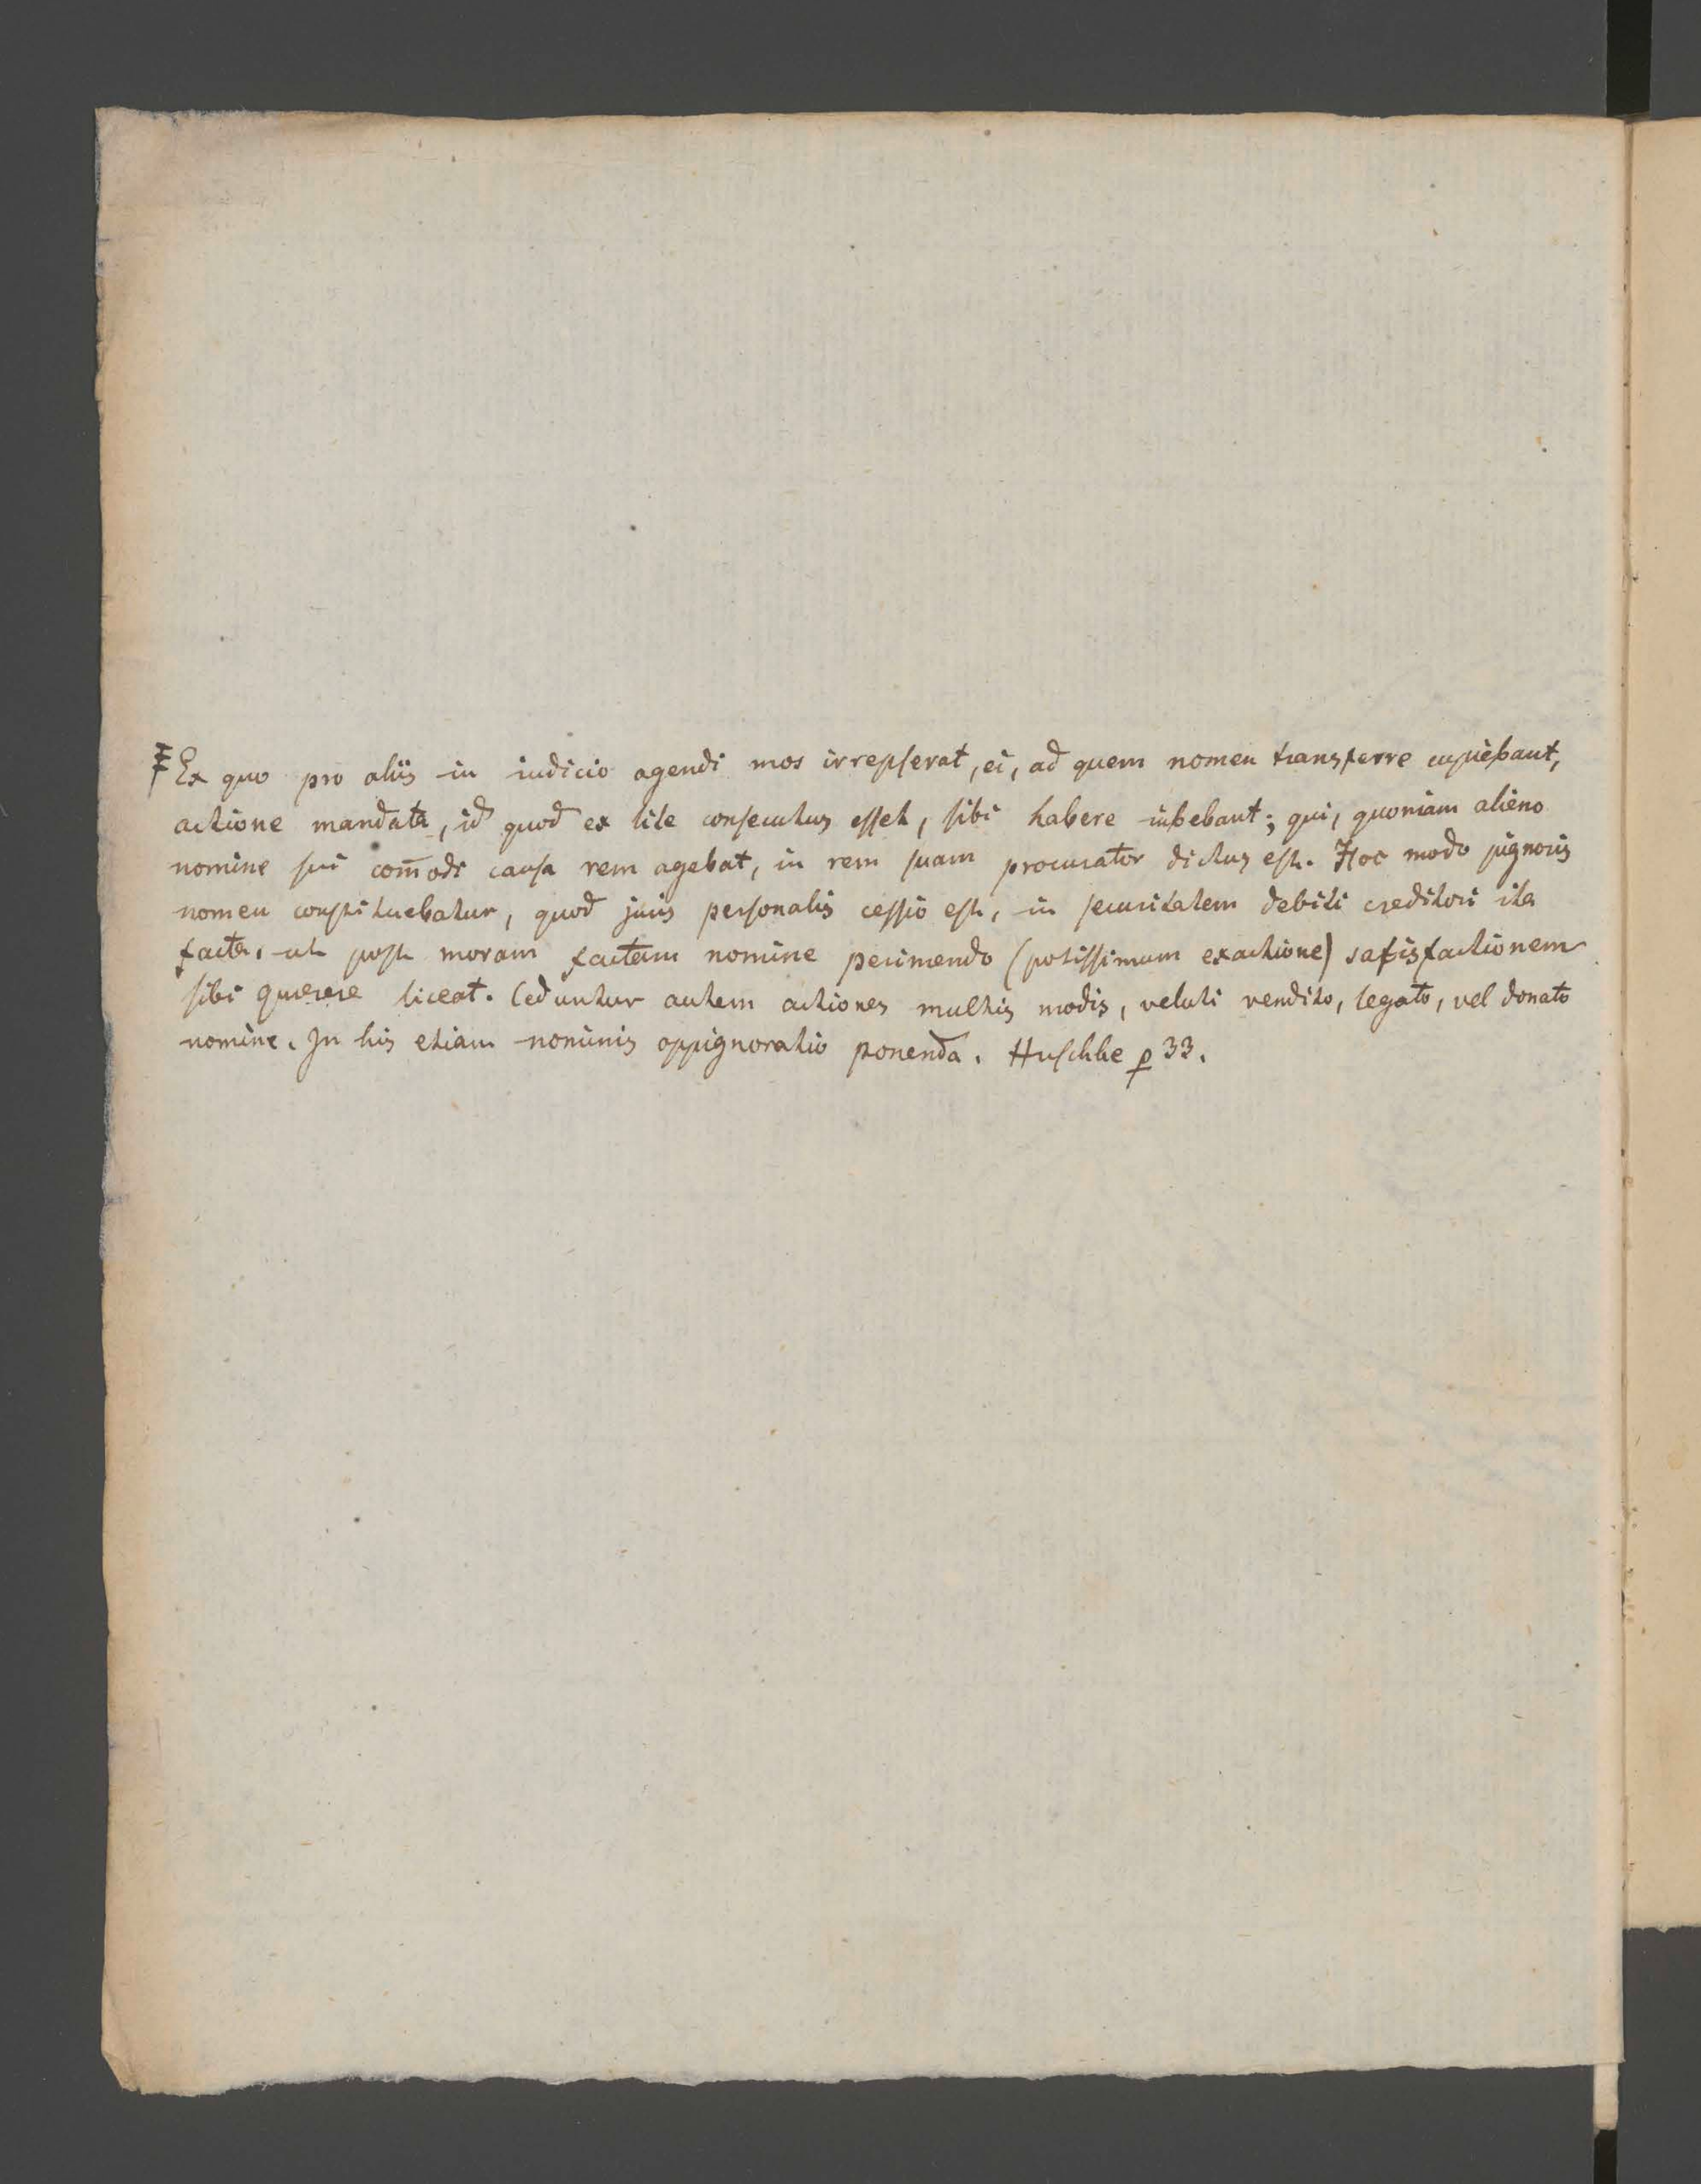 ‡ Ex quo pro aliis in iudicio agendi mos irrepserat, ei, ad quem nomen transferre cupiebant,
actione mandata, id quod ex lite consecutus esset, sibi habere iubebant; qui, quoniam alieno
nomine sui com̄odi causa rem agebat, in rem suam procurator dictus est. Hoc modo pignoris
nomen constituebatur, quod juris personalis cessio est, in securitatem debiti creditori ita
facta, ut post moram factam nomine perimendo (potissimum exactione) satisfactionem
sibi querere liceat. Ceduntur autem actiones multis modis, veluti vendito, legato, vel donato
nomine. In his etiam nominis oppignoratio ponenda. Huschke p 33.